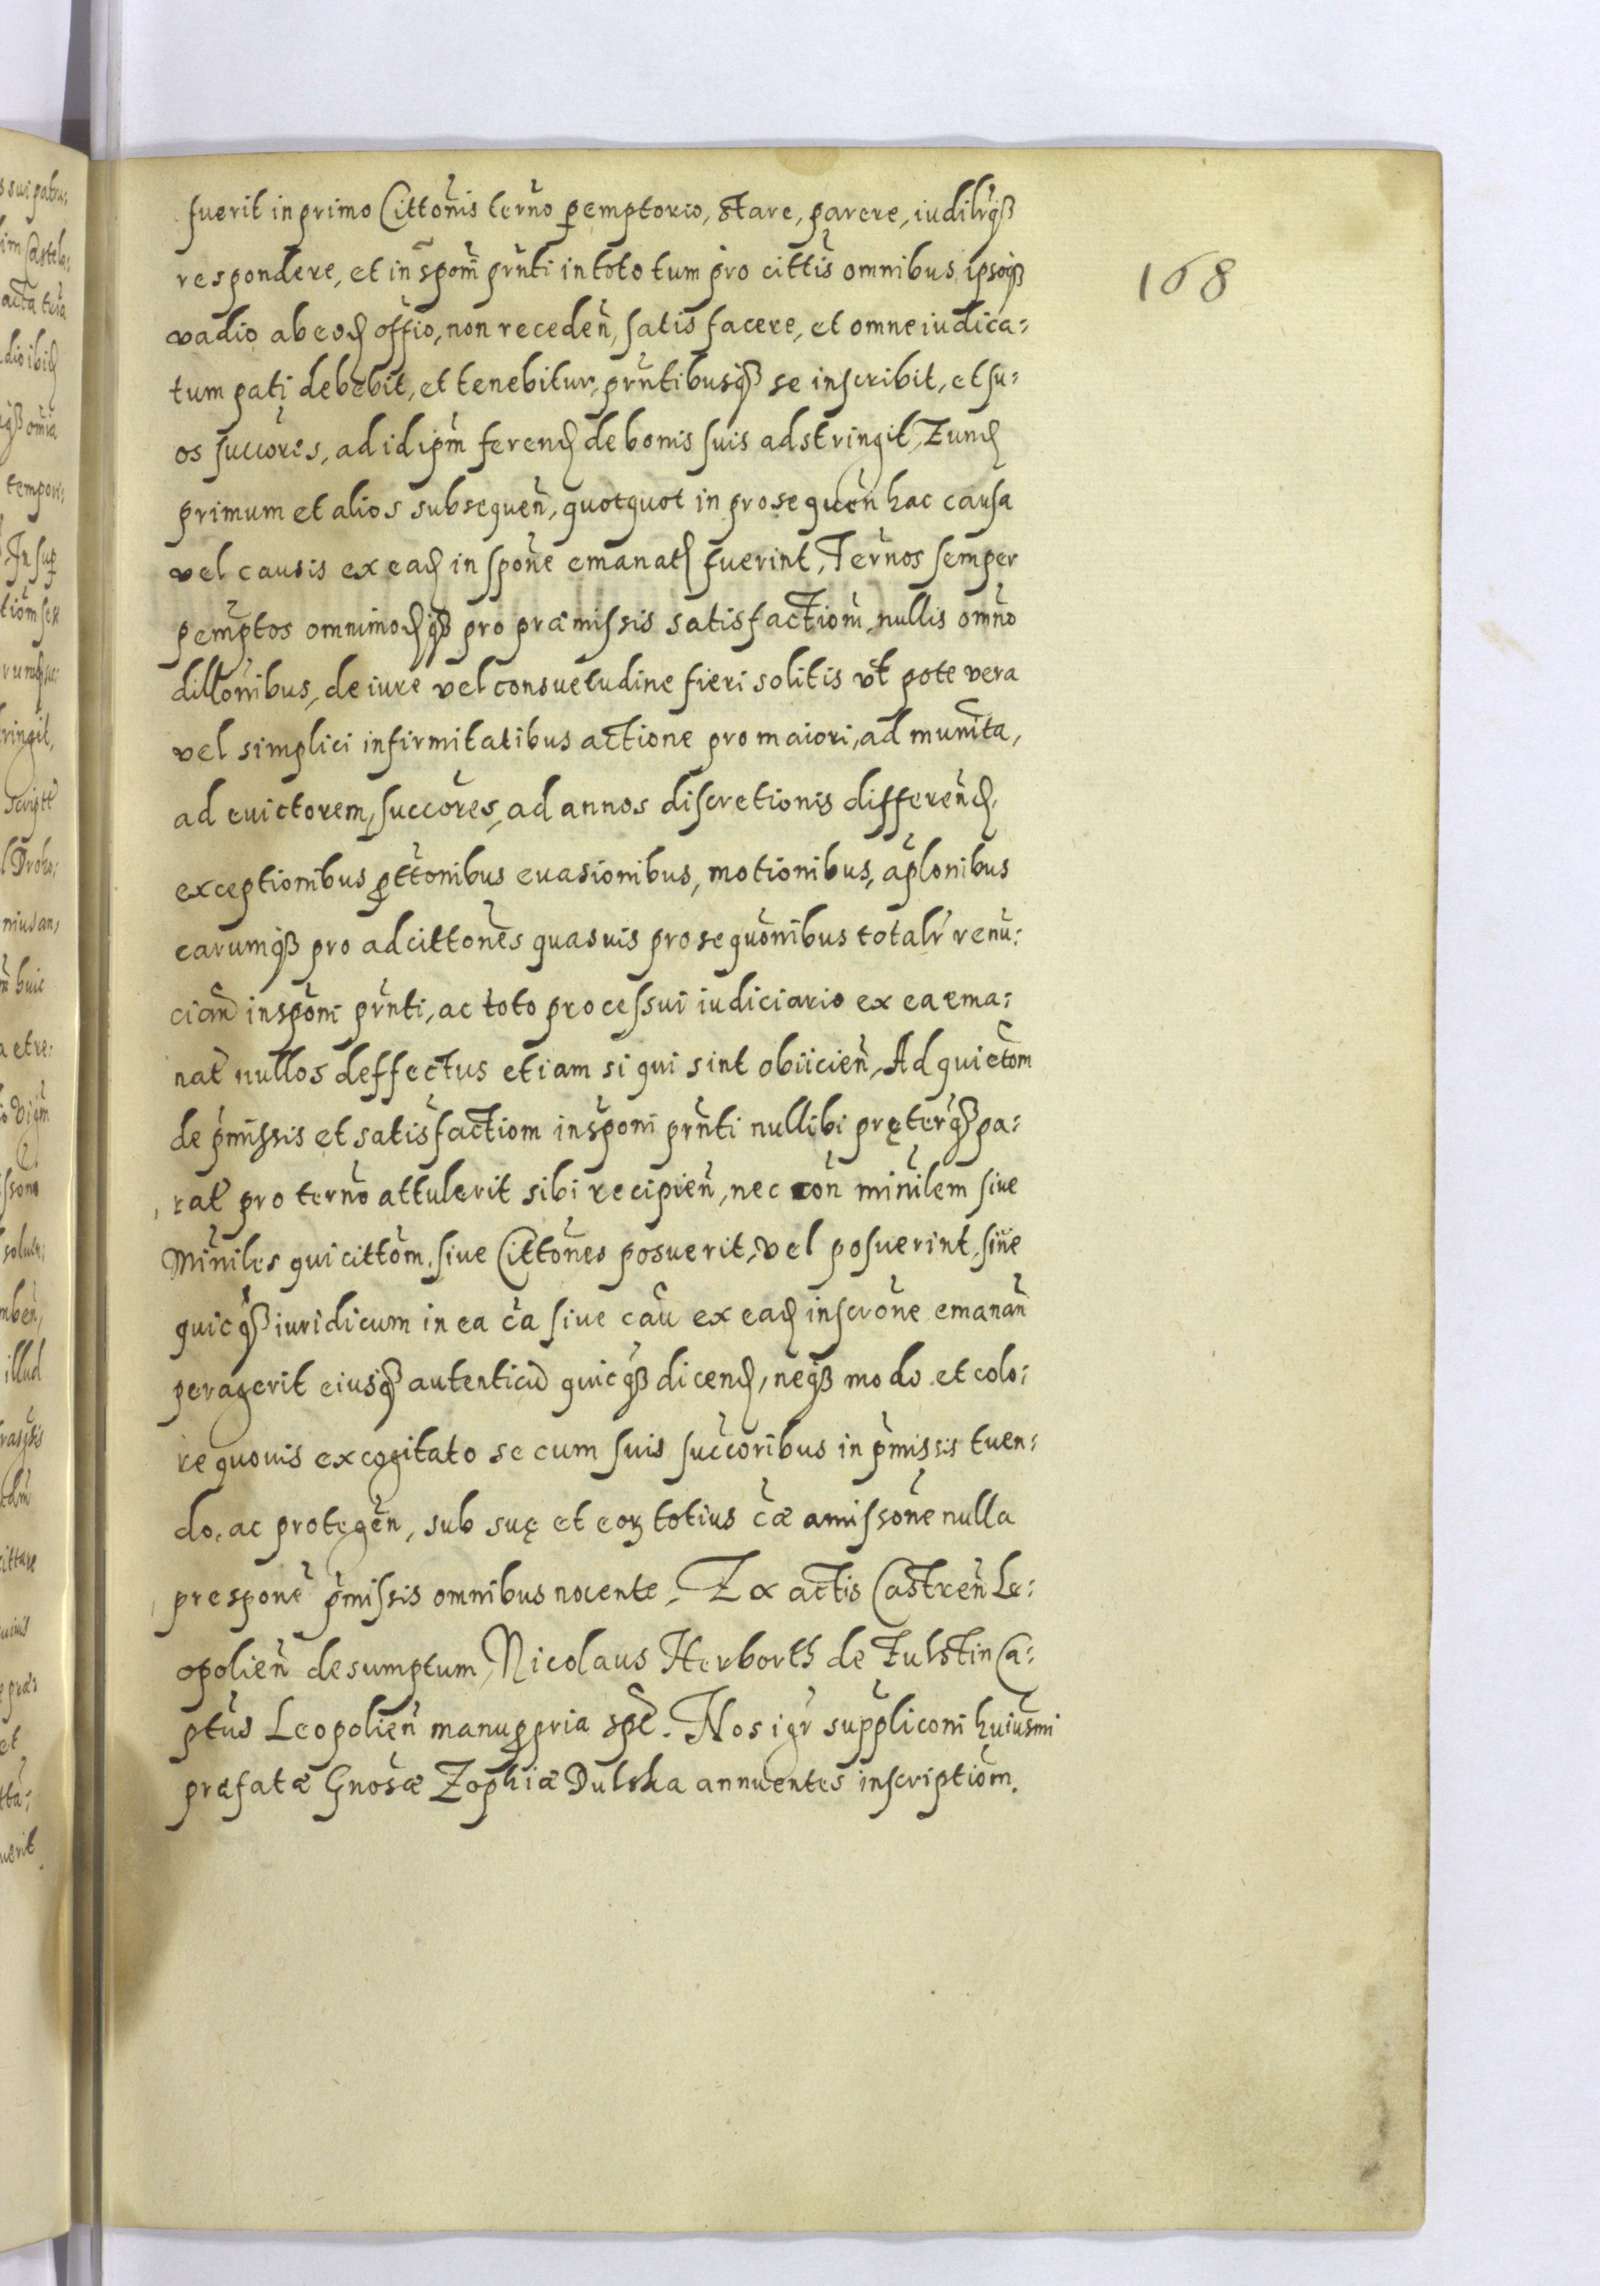 fuerit in primo Cittonis terno pemptorio, stare, parere, iudilrqȝ
respondere, et in sponi prnti in toto tum pro cittis omnibus ipsoqȝ
vadio ab eod offio, non receden, satis facere, et omne iudica:
tum pati debebit, et tenebitur, prntibusqȝ se inscribit, et su:
os succores, ad id ipm ferend de bonis suis adstringit, Tund
primum et alios subsequen, quotquot in prosequen hac causa
vel causis ex ead inspone emanat fuerint, Ternos semper
pemptos omnimodqȝ pro præmissis satisfactiom, nullis omno
dillonibus, de iure vel consuetudine fieri solitis vt pote vera
vel simplici infirmitatibus actione pro maiori, ad munita,
ad evictorem, succores, ad annos discretionis differend,
exceptionibus prttonibus evasionibus, motionibus, aplonibus
earumqȝ pro adcittones quasuis prosequonibus totalr renu:
cian insponi prnti, ac toto processui iudiciario ex ea ema:
nat nullos deffectus etiam si qui sint obiicien, Ad quietom
de pmissis et satisfactiom insponi prnti nullibi pręterqȝ pa:
rat pro terno attulerit sibi recipien, nec non minilem siue
Miniles qui cittom, siue Cittones posuerit, vel posuerint, sine
quicqȝ iuridicum in ea ca siue cau ex ead inscrone emanan
peragerit eiusqȝ autenticu quicqȝ dicend, neqȝ modo et colo:
re quouis excogitato se cum suis succoribus in pmissis tuen:
do, ac protegen, sub suę et eoꝝ totius cæ amissone nulla
prespone pmissis omnibus nocente. Ex actis Castren Le:
opolien desumptum, Nicolaus Herborth de Fulstin Ca:
ptus Leopolien manu ppria spt. Nos igr suppliconi huiusmi
præfatæ Gnosæ Zophiæ Dulska annuentes inscriptiom.
168